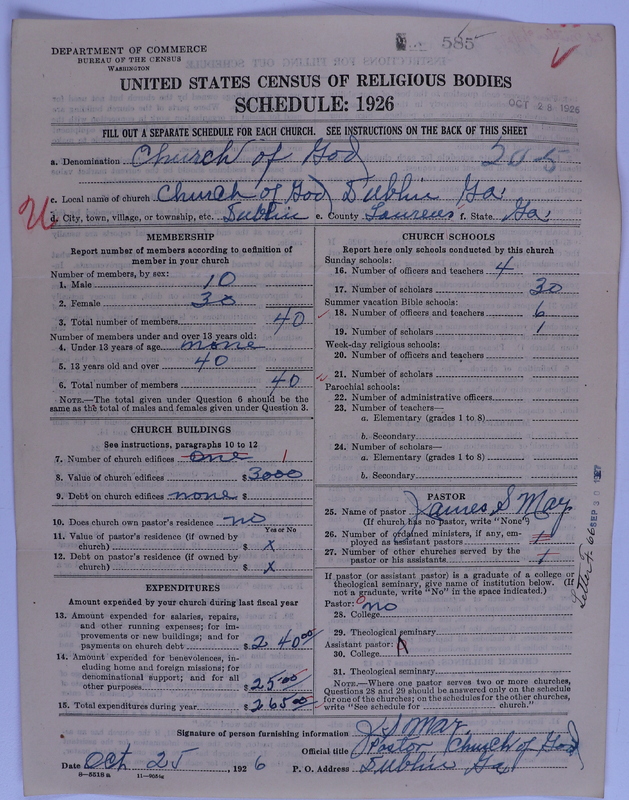 585
DEPARTMENT OF COMMERCE
BUREAU OF THE CENSUS
WASHINGTON
UNITED STATES CENSUS OF RELIGIOUS BODIES
SCHEDULE: 1926
OCT 28 1926
FILL OUT A SEPARATE SCHEDULE FOR EACH CHURCH. SEE INSTRUCTIONS ON THE BACK OF THIS SHEET
a. Denomination Church of God 205
c. Local name of church Church of God Dublin Ga
d. City, town, village, or township, etc. Dublin e. County Laurens f. State Ga
MEMBERSHIP
Report number of members according to definition of
member in your church
Number of members, by sex:
1. Male 10
2. Female 30
3. Total number of members 40
Number of members under and over 13 years old:
4. Under 13 years of age none
5. 13 years old and over 40
6. Total number of members 40
NOTE.—The total given under Question 6 should be the
same as the total of males and females given under Question 3.
CHURCH BUILDINGS
See instructions, paragraphs 10 to 12
7. Number of church edifices one 1
8. Value of church edifices $3000
9. Debt on church edifices none $
10. Does church own pastor's residence no
Yes or No
11. Value of pastor's residence (if owned by
church) $ x
12. Debt on pastor's residence (if owned by
church) $ x
EXPENDITURES
Amount expended by your church during last fiscal year
13. Amount expended for salaries, repairs,
and other running expenses; for im-
provements or new buildings; and for
payments on church debt $ 240 00
14. Amount expended for benevolences, in-
cluding home and foreign missions; for
denominational support; and for all
other purposes $ 25 00
15. Total expenditures during year $ 265 00
CHURCH SCHOOLS
Report here only schools conducted by this church
Sunday schools:
16. Number of officers and teachers 4
17. Number of scholars 30
Summer vacation Bible schools:
18. Number of officers and teachers 6
19. Number of scholars 1
Week-day religious schools:
20. Number of officers and teachers
21. Number of scholars
Parochial schools:
22. Number of administrative officers
23. Number of teachers—
a. Elementary (grades 1 to 8)
b. Secondary
24. Number of scholars—
a. Elementary (grades 1 to 8)
b. Secondary
PASTOR
25. Name of pastor James S May
(If church has no pastor, write "None")
26. Number of ordained ministers, if any, em-
ployed as assistant pastors 1
27. Number of other churches served by the
pastor or his assistants 1
If pastor (or assistant pastor) is a graduate of a college or
theological seminary, give name of institution below. (If
not a graduate, write "No" in the space indicated.)
Pastor:
28. College no
29. Theological seminary
Assistant pastor:
30. College
31. Theological seminary
NOTE.—Where one pastor serves two or more churches,
Questions 28 and 29 should be answered only on the schedule
for one of the churches; on the schedules for the other churches,
write "See schedule for church."
SEP 30 1927
Signature of person furnishing information J S May
Official title Pastor Church of God
Date Oct 25, 1926 P. O. Address Dublin Ga
8—5518 a